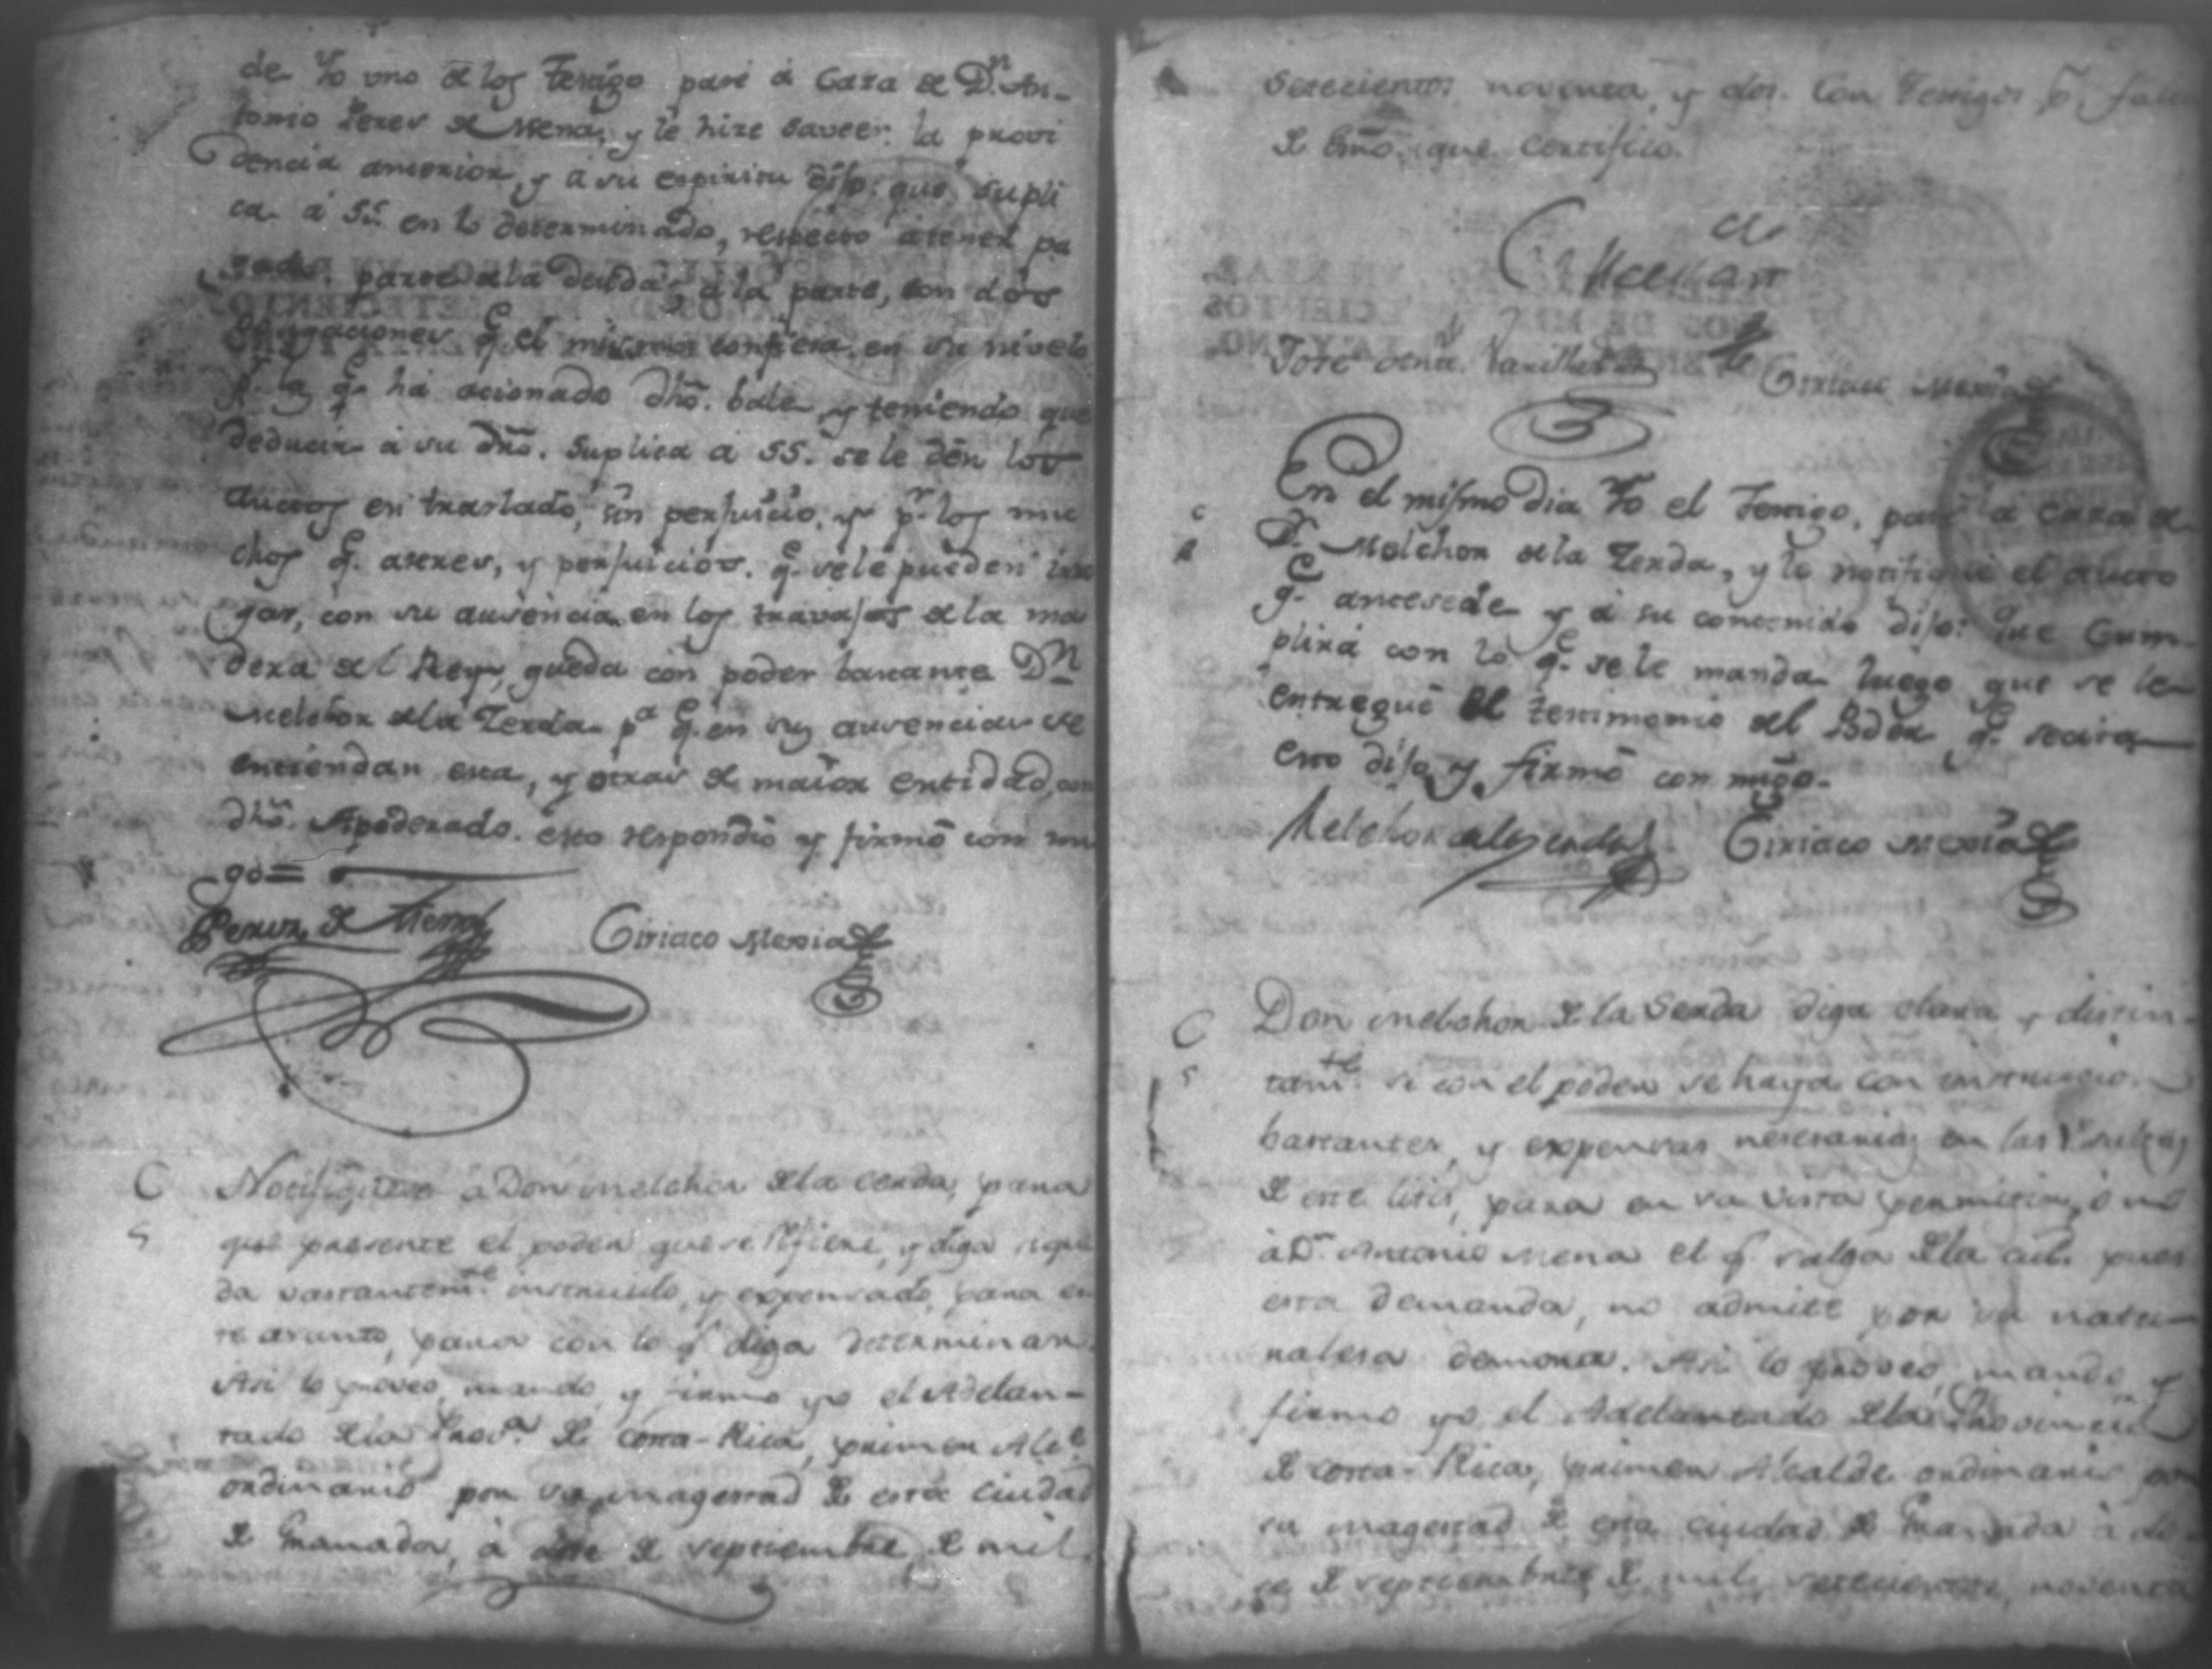 de Yo uno de los Testigo pasé á Casa de Dn. An-
tonio Peres de Mena, y le hize saveer la provi
dencia anterior, y á su espiritu dijo: que supli
ca á SSa. en lo determinado, respecto á tener pa
gado. parte de la deuda, á la parte, con dos
obligaciones qe. el mismo confiesa en su
qe. ha acionado dho. bale, y teniendo que
deducir á su dro. suplica á SS. se le dén los
auctos en traslado, sin perjuicio, y pr. los mu
chos qe. aseres, y perjuicios. qe. se le pueden irro
gar, con su ausencia en los travajos de la ma
dera del Rey, queda con poder bastante Dn
Melchor de la Zerda pa qe. en sus ausencias se
entiendan esta, y otras de maior entidad, con
dho. Apoderado. esto respondió y firmó con mi
go=
Perez de Mena Ciriaco Mexia
C Notifiquese á Don Melchor de la Cerda, para
S que presente el poder que se refiere, y diga si que
da vastantemte. instruido, y expensado, para es
te asunto, para con lo q. diga determinar.
Asi lo proveo, mando, y firmo yo el Adelan-
tado de la Prova. de Costa-Rica, primer Alce.
ordinario por su magestad de esta ciudad
de Granada, á dose de septiembre de mil
setecientos noventa, y dos. Con Testigos pr. falta
de Esno. que certifico.
José Ciriaco Mexia
En el mismo dia Yo el Testigo, pasé á casa de
Dn. Melchor de la Zerda, y le notifiqué el aucto
qe. antescede y á su contenido dijo: Que Cum-
plirá con lo qe. se le manda luego que se le
entregue el testimonio del Poder, qe.
esto dijo, y firmó con migo.
Melchor de la Zerda Ciriaco Mexia
C Don Melchor de la Serda diga clara y distin-
S tamte. si con el poder se haya con instrucion
bastantes, y expensas nesesarias en las resultas
de este litis, para en su vista permitir, ó no
á Dn. Antonio Mena el q. salga de la ciud. pues
esta demanda, no admite por su natu-
ralesa demora. Asi lo proveo, mando, y
firmo yo el Adelantado de la Provincia
de Costa-Rica, primer Alcalde ordinario por
su magestad de esta ciudad de Granada á do-
se de septiembre de mil setecientos, noventa